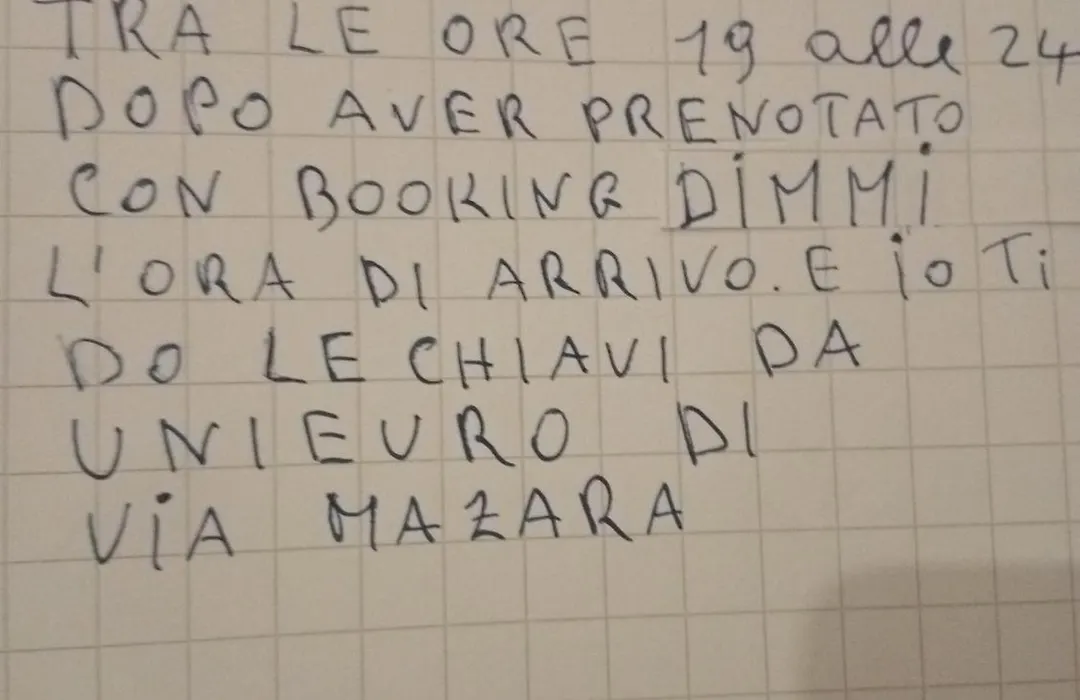 TRA LE ORE 19 alle 24
DOPO AVER PRENOTATO
CON BOOKING DIMMI
L'ORA DI ARRIVO. E io Ti
DO LE CHIAVI DA
UNIEURO DI
ViA MAZARA